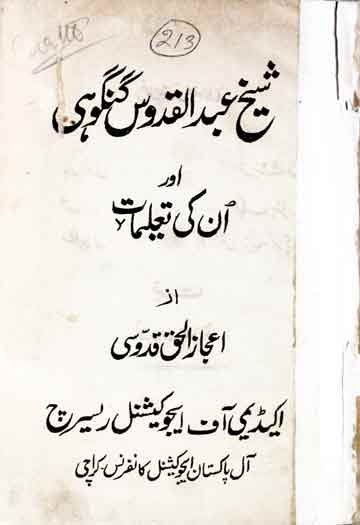 213
شیخ عبد القدوس گنگوہی
اور
اُن کی تعلیمات
از
اعجاز الحق قدّوسی
اکیڈیمی آف ایجوکیشنل ریسرچ
آل پاکستان ایجوکیشنل کانفرنس۔ کراچی